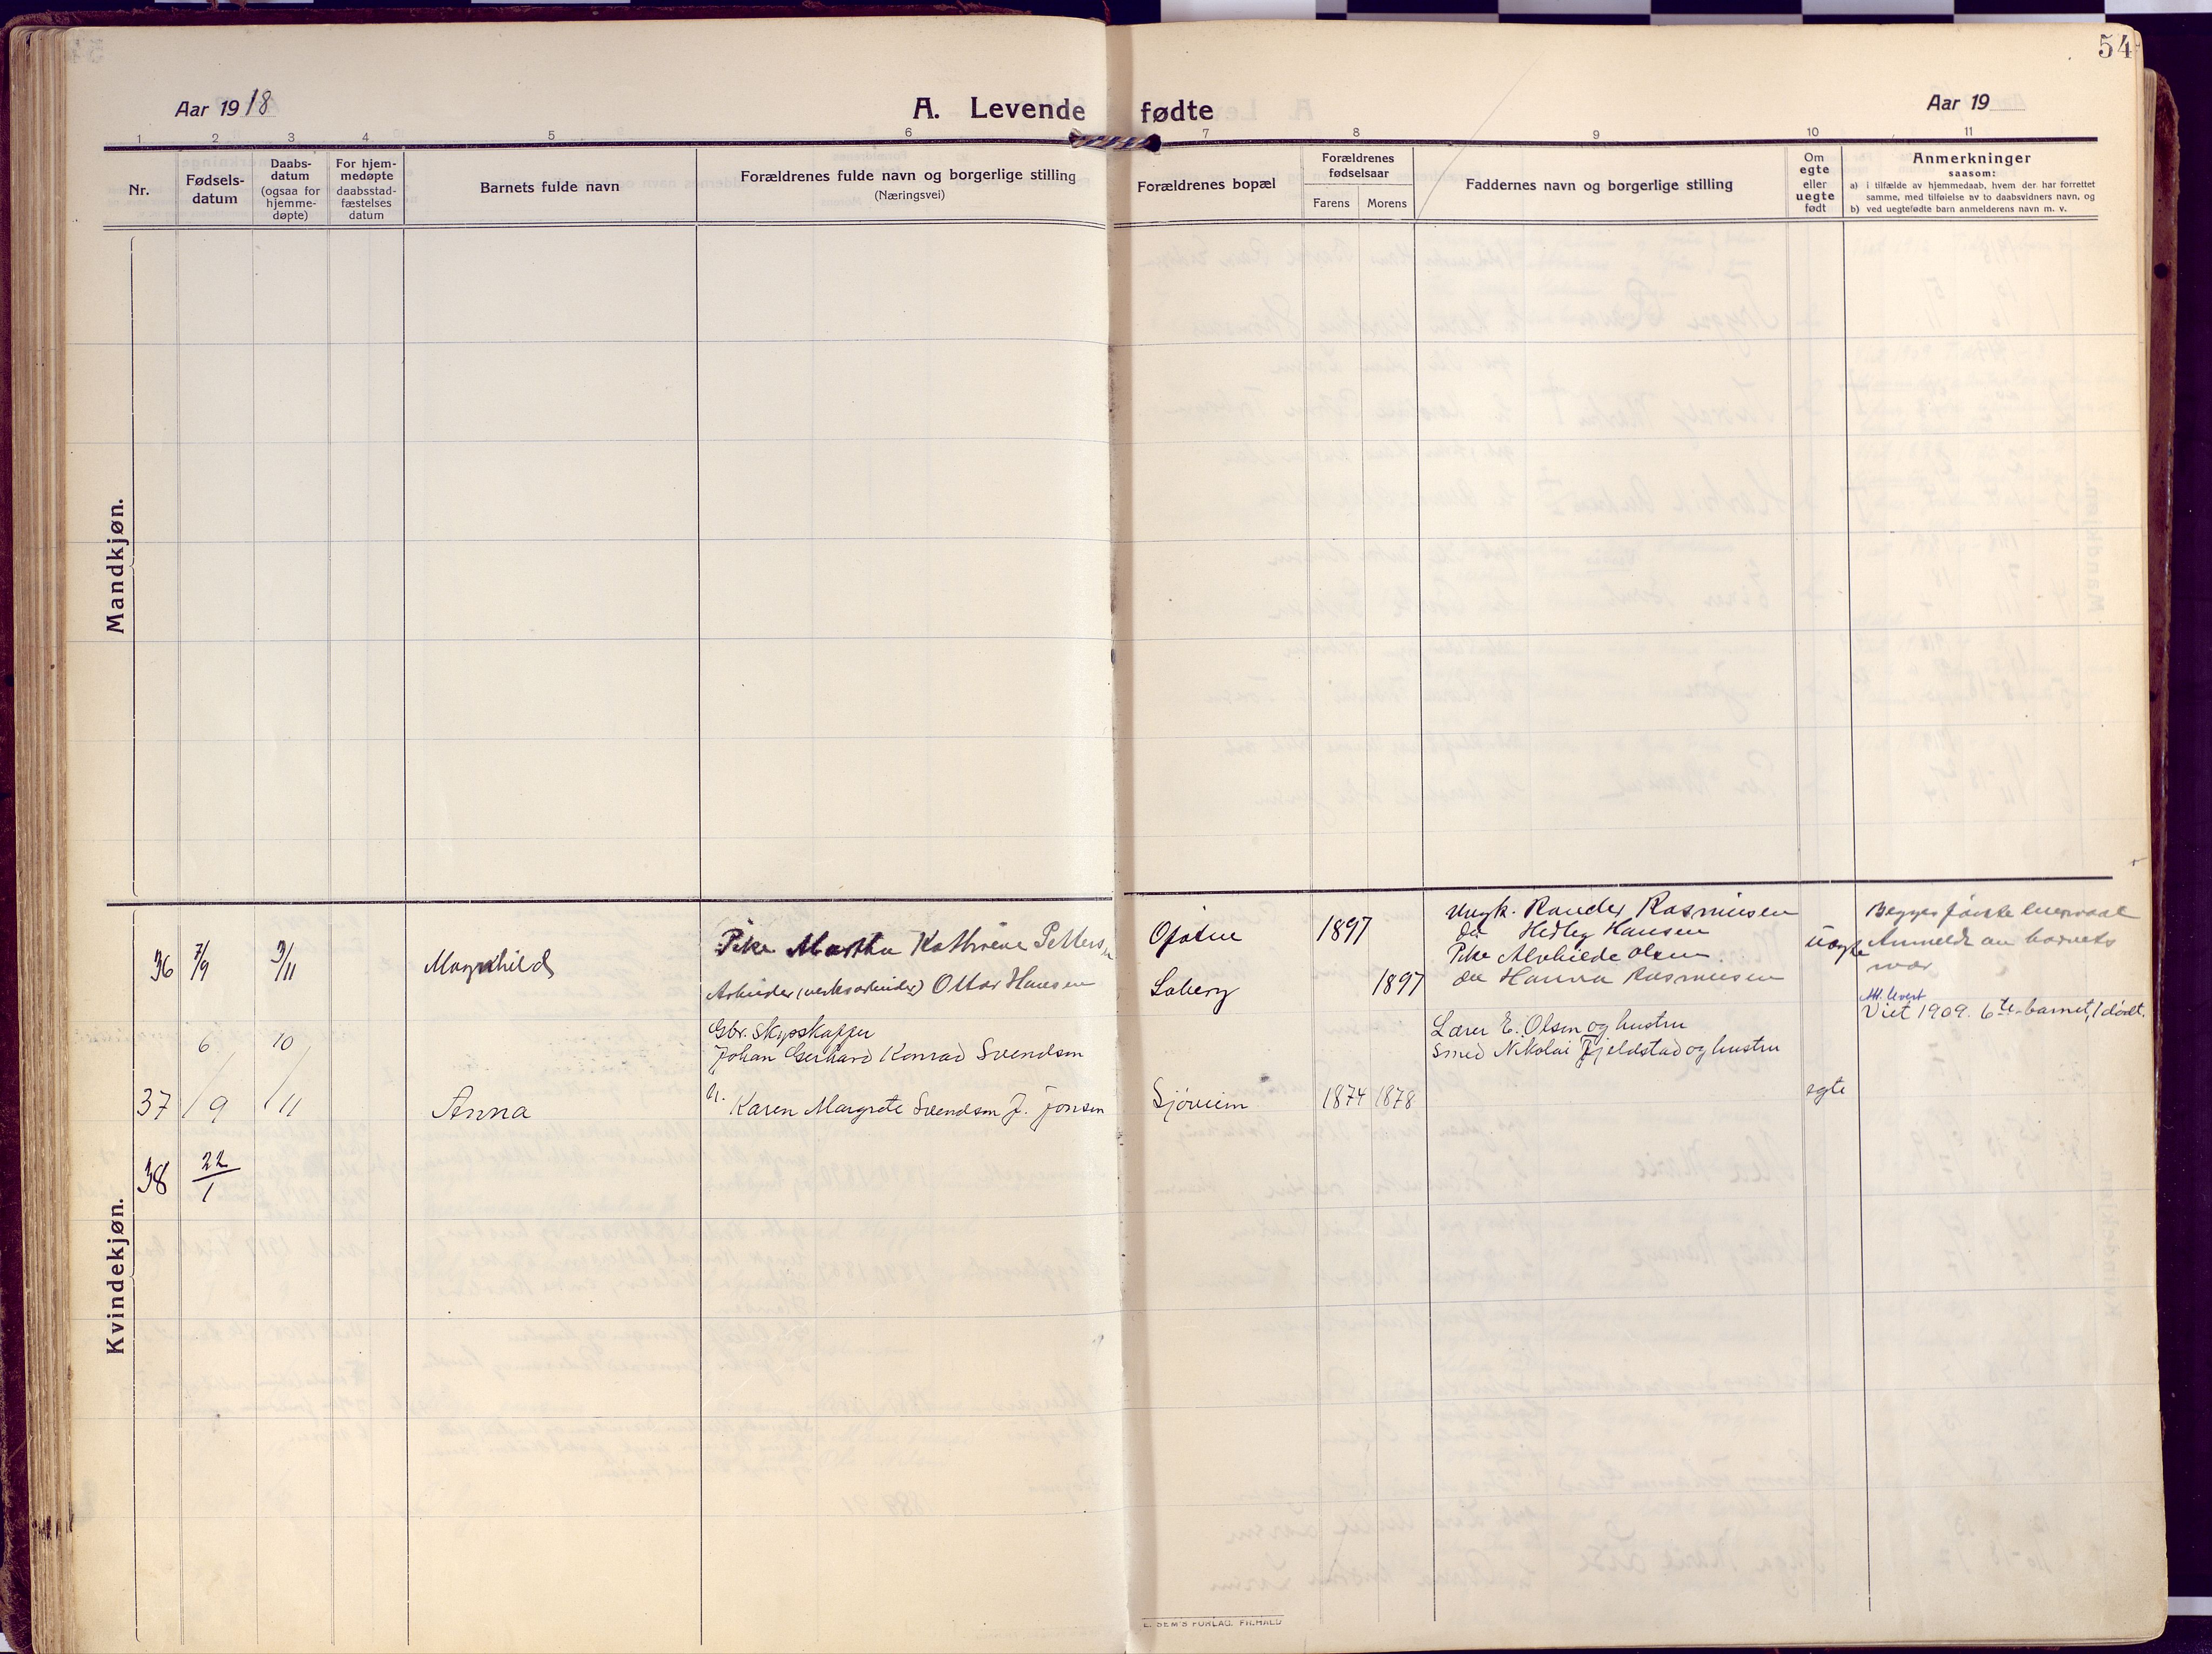 54
Aar 1918
A. Levende fødte
Aar 19
1 2 3 4 5 6 7 8 9 10 11
Nr.
Fødsels-
datum
Daabs-
datum
(ogsaa for
hjemme-
døpte)
For hjem-
medøpte
daabsstad-
fæstelses
datum
Barnets fulde navn
Forældrenes fulde navn og borgerlige stilling
(Næringsvei)
Forældrenes bopæl
Forældrenes
fødselsaar
Farens Morens
Faddernes navn og borgerlige stilling
Om
egte
eller
uegte
født
Anmerkninger
saasom:
a) i tilfælde av hjemmedaab, hvem der har forrettet
samme, med tilføielse av to daabsvidners navn, og
b) ved uegtefødte barn anmelderens navn m. v.
Mandkjøn.
Kvindekjøn.
36 7/9 3/11 Magnhild
Pike Martha Kathrine Petters
Arbeider (verksarbeider) Ottar Hansen
Saberg
1897
1897
Ungk. Rasmussen
do Hedley Hansen
Pike Alvhilde Olsen
do Hanna Rasmussen
uegte
Begges første
Anmeldt av barnets
mor
37 6/9 10/11 Anna
Gbr. Skipskaffer
Johan Gerhard Konrad Svendsen
h. Karen Margrete Svendsen f. Jonsen
Sjøveien
1874 1878
Lærer E. Olsen og hustru
Smed Nikolai Fjeldstad og hustru
egte
Att. levert
Viet 1909. 6te barnet, 1 dødt.
38 22/1
E. SEM'S FORLAG. FR.HALD